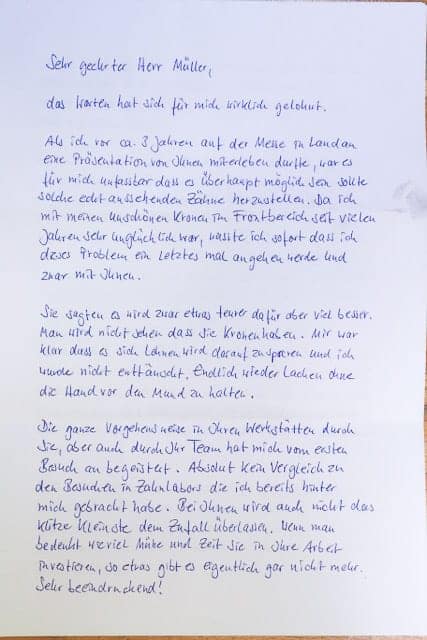 Sehr geehrter Herr Müller,
das Warten hat sich für mich wirklich gelohnt.
Als ich vor ca. 3 Jahren auf der Messe in Landau
eine Präsentation von Ihnen miterleben durfte, war es
für mich unfassbar dass es überhaupt möglich sein sollte
solche echt aussehenden Zähne herzustellen. Da ich
mit meinen unschönen Kronen im Frontbereich seit vielen
Jahren sehr unglücklich war, wusste ich sofort dass ich
dieses Problem ein Letztes mal angehen werde und
zwar mit Ihnen.
Sie sagten es wird zwar etwas teurer dafür aber viel besser.
Man wird nicht sehen dass Sie Kronen haben. Mir war
klar dass es sich Lohnen wird darauf zu sparen und ich
wurde nicht enttäuscht. Endlich wieder Lachen ohne
die Hand vor den Mund zu halten.
Die ganze Vorgehensweise in Ihren Werkstätten durch
Sie, aber auch durch Ihr Team hat mich vom ersten
Besuch an begeistert. Absolut kein Vergleich zu
den Besuchen in Zahnlabors die ich bereits hinter
mich gebracht habe. Bei Ihnen wird auch nicht das
klitze Kleinste dem Zufall überlassen. Wenn man
bedenkt wieviel Mühe und Zeit Sie in Ihre Arbeit
investieren, so etwas gibt es eigentlich gar nicht mehr.
Sehr beeindruckend!